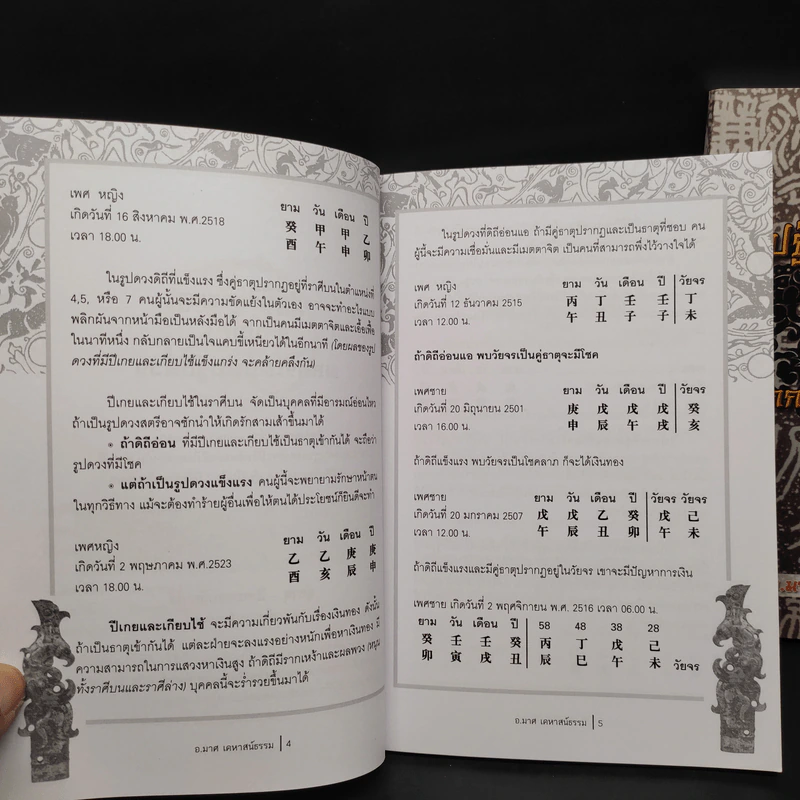 เพศ หญิง
เกิดวันที่ 16 สิงหาคม พ.ศ.2518
เวลา 18.00 น.
ยาม วัน เดือน ปี
癸 甲 甲 乙
酉 午 申 卯
ในรูปดวงดิถีที่แข็งแรง ซึ่งคู่ธาตุปรากฏอยู่ที่ราศีบนในตำแหน่งที่
4,5, หรือ 7 คนผู้นั้นจะมีความขัดแย้งในตัวเอง อาจจะทำอะไรแบบ
พลิกผันจากหน้ามือเป็นหลังมือได้ จากเป็นคนมีเมตตาจิตและเอื้อเฟื้อ
ในนาทีหนึ่ง กลับกลายเป็นใจแคบขี้เหนียวได้ในอีกนาที (โดยผลของรูป
ดวงที่มีปีเกยและเกียบไช้แข็งแกร่ง จะคล้ายคลึงกัน)
ปีเกยและเกียบไช้ในราศีบน จัดเป็นบุคคลที่มีอารมณ์อ่อนไหว
ถ้าเป็นรูปดวงสตรีอาจชักนำให้เกิดรักสามเส้าขึ้นมาได้
● ถ้าดิถีอ่อน ที่มีปีเกยและเกียบไช้เป็นธาตุเข้ากันได้ จะถือว่า
รูปดวงที่มีโชค
● แต่ถ้าเป็นรูปดวงแข็งแรง คนผู้นี้จะพยายามรักษาหน้าตน
ในทุกวิถีทาง แม้จะต้องทำร้ายผู้อื่นเพื่อให้ตนได้ประโยชน์ก็ยินดีจะทำ
เพศหญิง
เกิดวันที่ 2 พฤษภาคม พ.ศ.2523
เวลา 18.00 น.
ยาม วัน เดือน ปี
乙 乙 庚 庚
酉 亥 辰 申
ปีเกยและเกียบไช้ จะมีความเกี่ยวพันกับเรื่องเงินทอง ดังนั้น
ถ้าเป็นธาตุเข้ากันได้ แต่ละฝ่ายจะลงแรงอย่างหนักเพื่อหาเงินทอง มี
ความสามารถในการแสวงหาเงินสูง ถ้าดิถีมีรากเหง้าและผลพวง (หนุน
ทั้งราศีบนและราศีล่าง) บุคคลนี้จะร่ำรวยขึ้นมาได้
อ.มาศ เคหาสน์ธรรม 4
ในรูปดวงที่ดิถีอ่อนแอ ถ้ามีคู่ธาตุปรากฏและเป็นธาตุที่ชอบ คน
ผู้นี้จะมีความเชื่อมั่นและมีเมตตาจิต เป็นคนที่สามารถพึ่งไว้วางใจได้
เพศ หญิง
เกิดวันที่ 12 ธันวาคม 2515
เวลา 12.00 น.
ยาม วัน เดือน ปี วัยจร
丙 丁 壬 壬 丁
午 丑 子 子 未
ถ้าดิถีอ่อนแอ พบวัยจรเป็นคู่ธาตุจะมีโชค
เพศชาย
เกิดวันที่ 20 มิถุนายน 2501
เวลา 16.00 น.
ยาม วัน เดือน ปี วัยจร
庚 戊 戊 戊 癸
申 辰 午 戌 亥
ถ้าดิถีแข็งแรง พบวัยจรเป็นโชคลาภ ก็จะได้เงินทอง
เพศชาย
เกิดวันที่ 20 มกราคม 2507
เวลา 12.00 น.
ยาม วัน เดือน ปี วัยจร วัยจร
戊 戊 乙 癸 戊 己
午 辰 丑 卯 午 未
ถ้าดิถีแข็งแรงและมีคู่ธาตุปรากฏอยู่ในวัยจร เขาจะมีปัญหาการเงิน
เพศชาย เกิดวันที่ 2 พฤศจิกายน พ.ศ. 2516 เวลา 06.00 น.
ยาม วัน เดือน ปี 58 48 38 28
癸 壬 壬 癸 丙 丁 戊 己
卯 寅 戌 丑 辰 巳 午 未 วัยจร
อ.มาศ เคหาสน์ธรรม 5